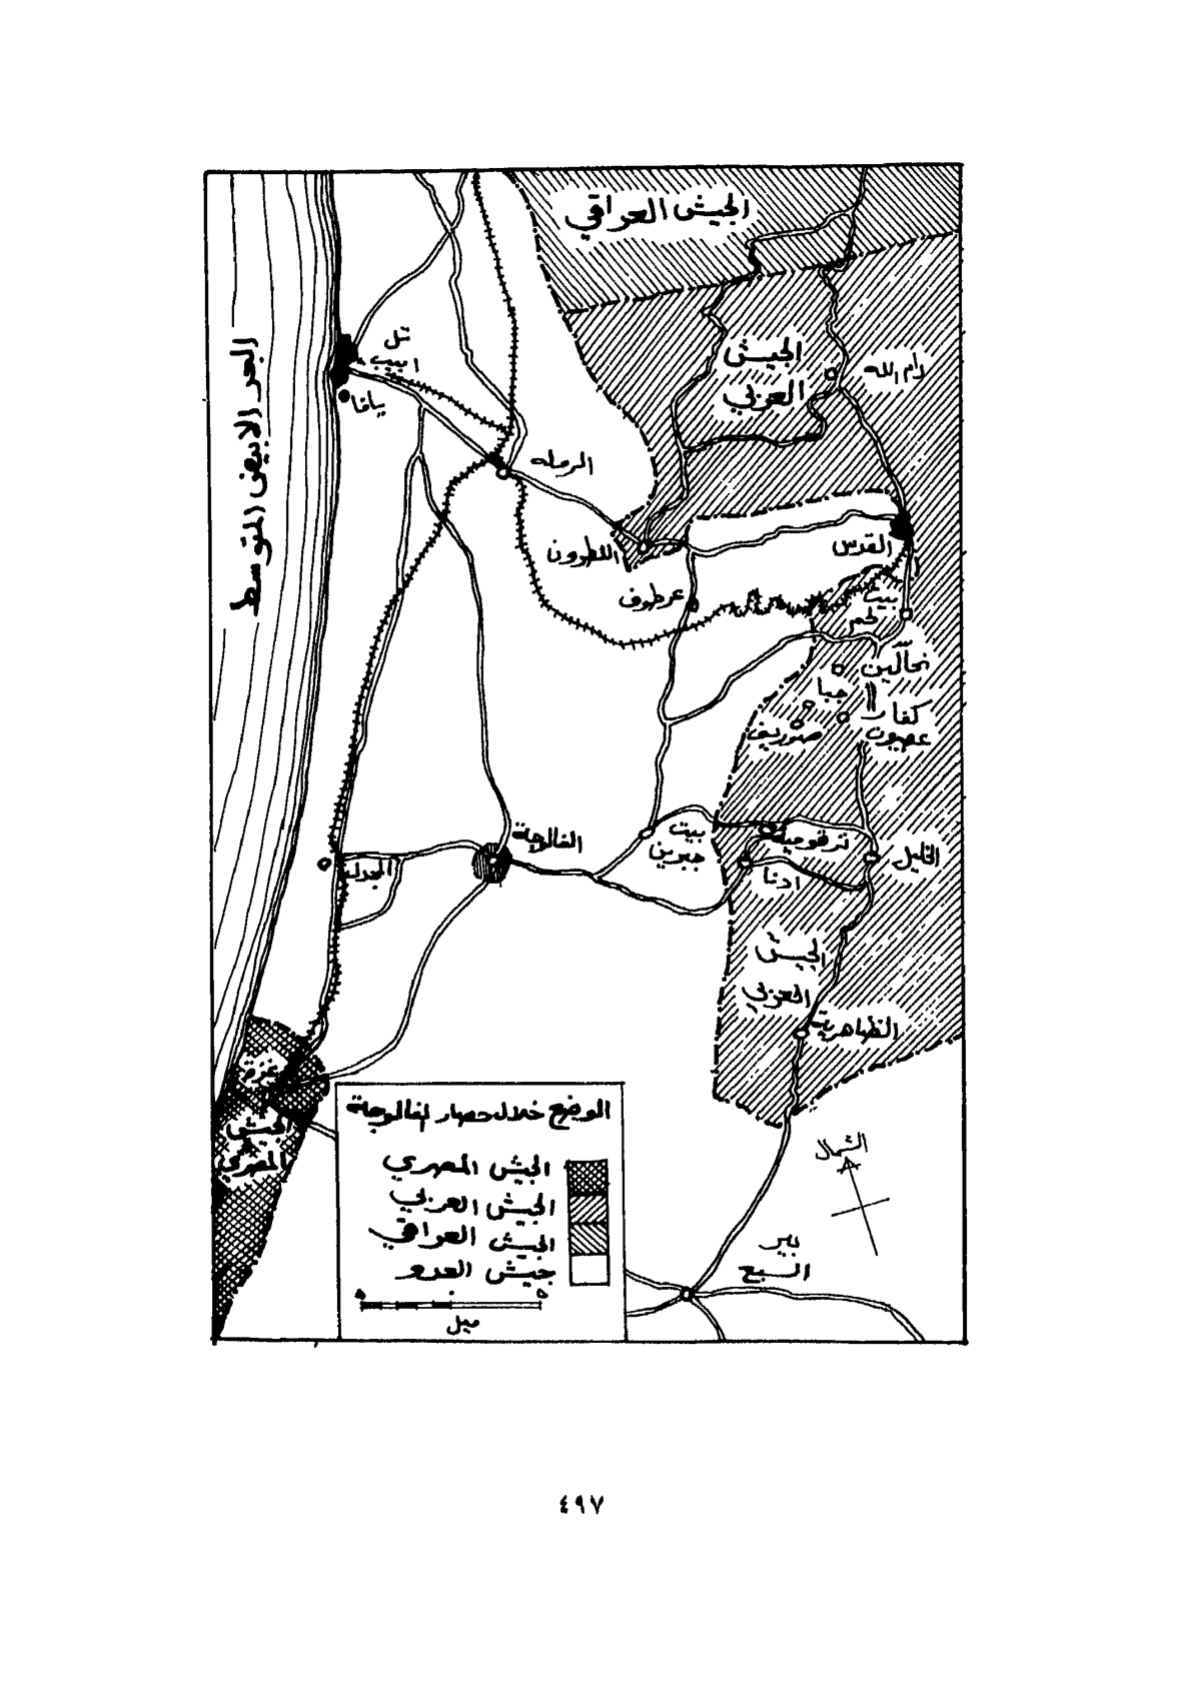 الجيش العراقي
البحر الابيض المتوسط
تل
ابيب
يافا
الجيش
العربي
رام الله
الرمله
اللطرون
القدس
عرطوف
بيت
لحم
نحالين
جبا
كفار
عصيون
صوريف
الفالوجة
بيت
جبرين
ترقوميا
الخليل
المجدل
ادنا
الجيش
العربي
الظاهرية
غزة
الجيش
المصري
الوضع خلال حصار الفالوجة
الجيش المصري
الجيش العربي
الجيش العراقي
جيش العدو
٥ ٥
ميل
الشمال
بير
السبع
٤٩٧